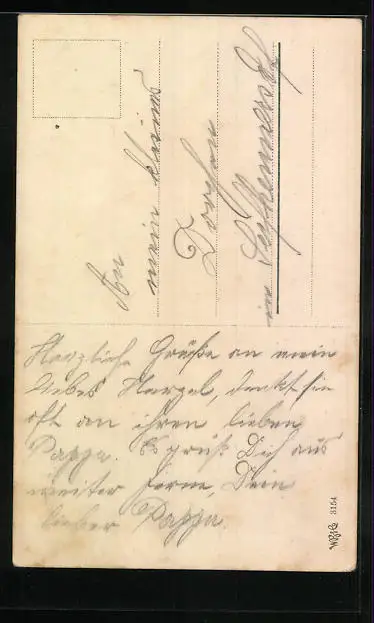 An
mein kleines
Dorchen
in Seifhennersdf
Herzliche Grüße an mein
liebes Herzel, denkst sie
oft an ihren lieben
Pappa. Es grüßt Dich aus
weiter Ferne, Dein
lieber Pappa.
3154